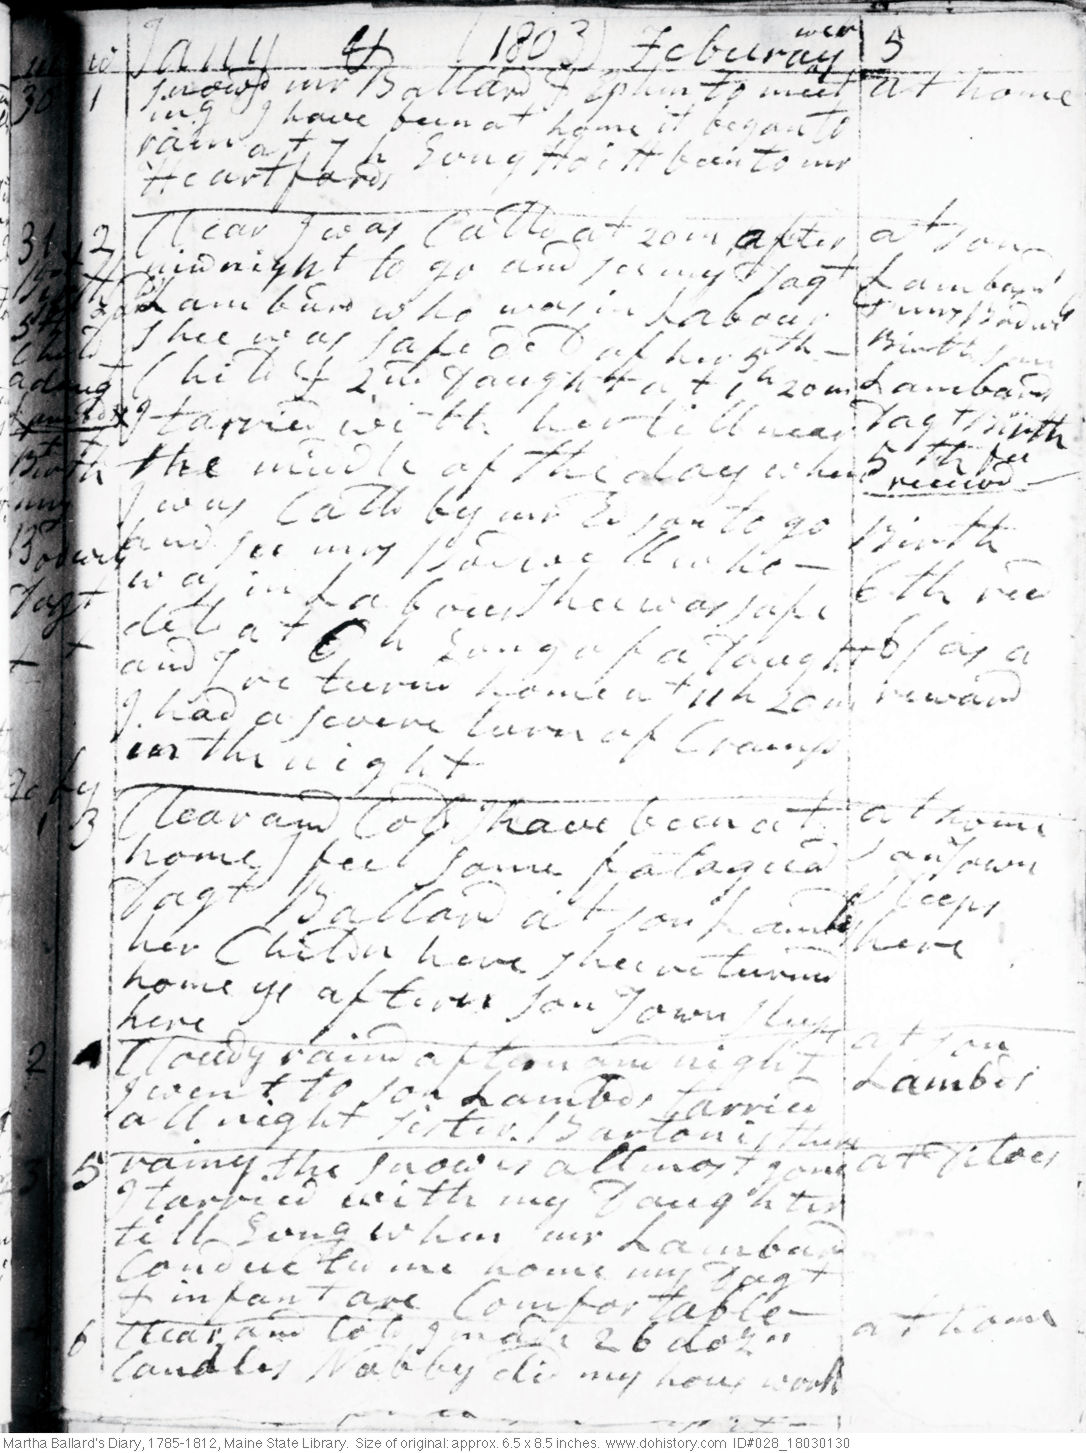 Jany & (1803) Feburay 5
30 1 Snowd mr Ballard & Ephm to meet at home
ing I have been at home it began to
rain at 7 h Evng Hoitt been to mr
Heartfords
31 2 Clear I was Calld at 20 m after at son
midnight to go and see my Dagt Lambard
Lambard who was in Labour & mrs Bodwel
Shee was safe dd of her 5th Birth son
Child & 2nd Daught at 1 h 20 m Lambard
I tarried with her till near Dagt Birth
the midle of the day when 5th fee
received
I was Calld by mr Edson to go Birth
and see mrs Bodwell who
was in Labour Shee was safe 6th recd
deld at 6 h Evng of a Daught 6/ as a
and I returnd home at 11 h 20 m reward
I had a severe turn of Cramp
in the night
Feby
1 3 Clear and Cold I have been at at home
home I feel some fatagued son Town
Dagt Ballard at son Lambds sleeps
her Childn here shee returnd here
home ys aftern son Town sleeps
here
2 4 Cloudy raind aftern and night at son
I went to son Lambds tarried Lambds
all night Sister Barton is there
3 5 rainy the snow is allmost gone at Ditoes
I tarried with my Daughter
till Evng when mr Lambard
Conduct me home my Dagt
& infant are Comfortable
6 Clear and Cold I made 26 dozn at home
Candles Nabby did my hous work
Martha Ballard's Diary, 1785-1812, Maine State Library. Size of original: approx. 6.5 x 8.5 inches. www.dohistory.com ID#028_18030130